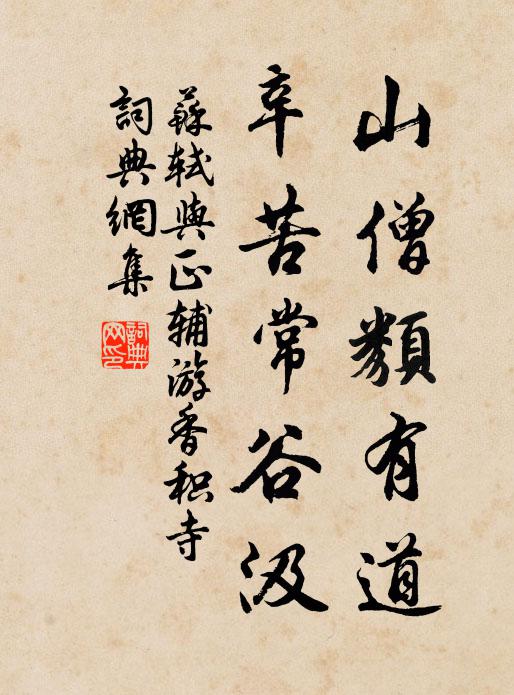 山僧類有道
辛苦常谷汲
蘇軾與正輔游香积寺
詞典網集
詞典網印